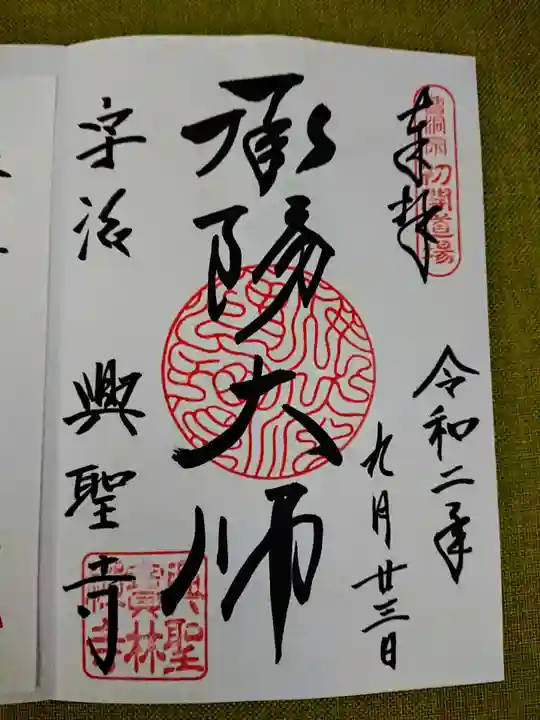 奉拝
曹洞宗初開道場
令和二年
九月廿三日
承陽大師
宇治
興聖寺
興聖
寶林
禅寺